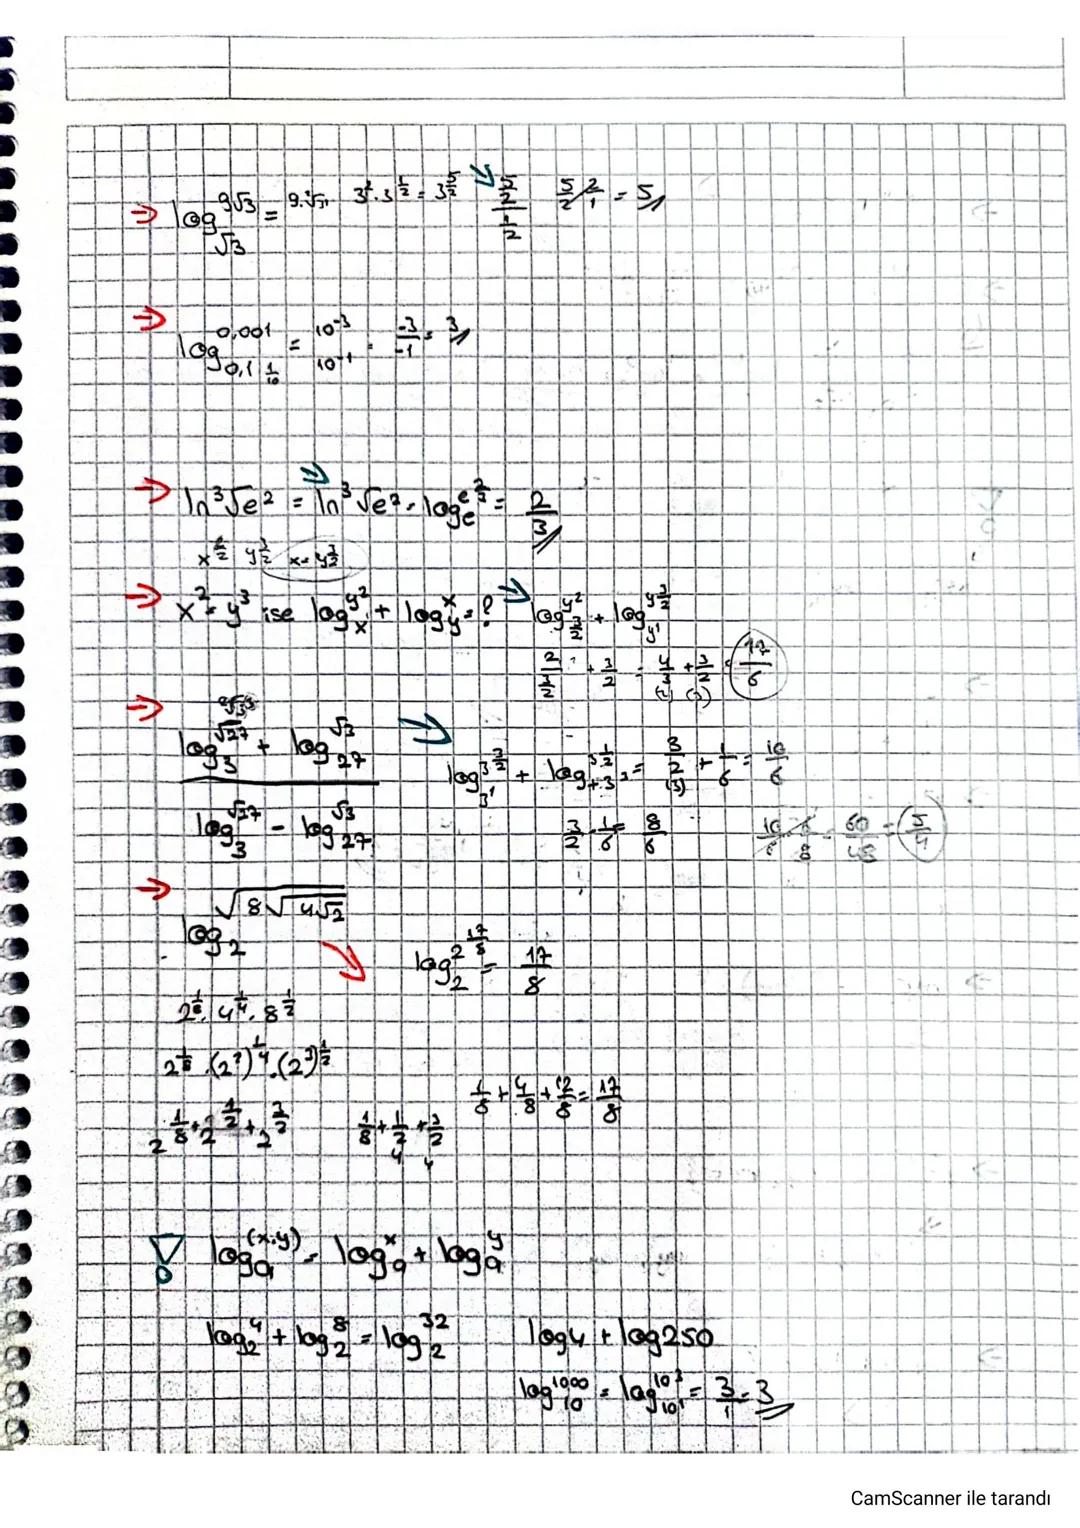 → log_√3 9√3 = 9.√3, 3².3^(1/2) = 3^(5/2) (5/2)/(1/2) 5/2 . 2/1 = 5
→ log_0,1 0,001 = 10⁻³ 10⁻¹ = -3/-1 = 3
1/10
→ ln ³√e² = ln ³√e² . log_e e^(2/3) = 2/3
y^(3/2) x = y^(3/2)
→ x² = y³ ise log_x y² + log_y x = ? log y² + log_y¹ y^(3/2)
2/(3/2) + 3/2 = 4/3 + 3/2 =
(2) (3)
→ log_3 √27 + log_27 √3
log_3¹ 3^(3/2) + log 3^(1/2) = 3/2 + 1/6 = 10/6
(3)
log_3 √27 - log_27 √3 3/2 - 1/6 = 8/6 10/6 . 6/8 = 60/48 = 5/4
→ log_2 √(8√(4√2))
log_2 2^(17/8) = 17/8
2^(1/8) . 4^(1/4) . 8^(1/2)
2^(1/8) . (2²)^(1/4) . (2³)^(1/2)
1/8 + 4/8 + 12/8 = 17/8
2^(1/8) + 2^(1/2) + 2^(3/2) 1/8 + 1/2 + 3/2
4 4
log_a (x.y) = log_a x + log_a y
log_2 4 + log_2 8 = log_2 32 log4 + log250
log_10 1000 = log_10¹ 10³ = 3/1 = 3
CamScanner ile tarandı